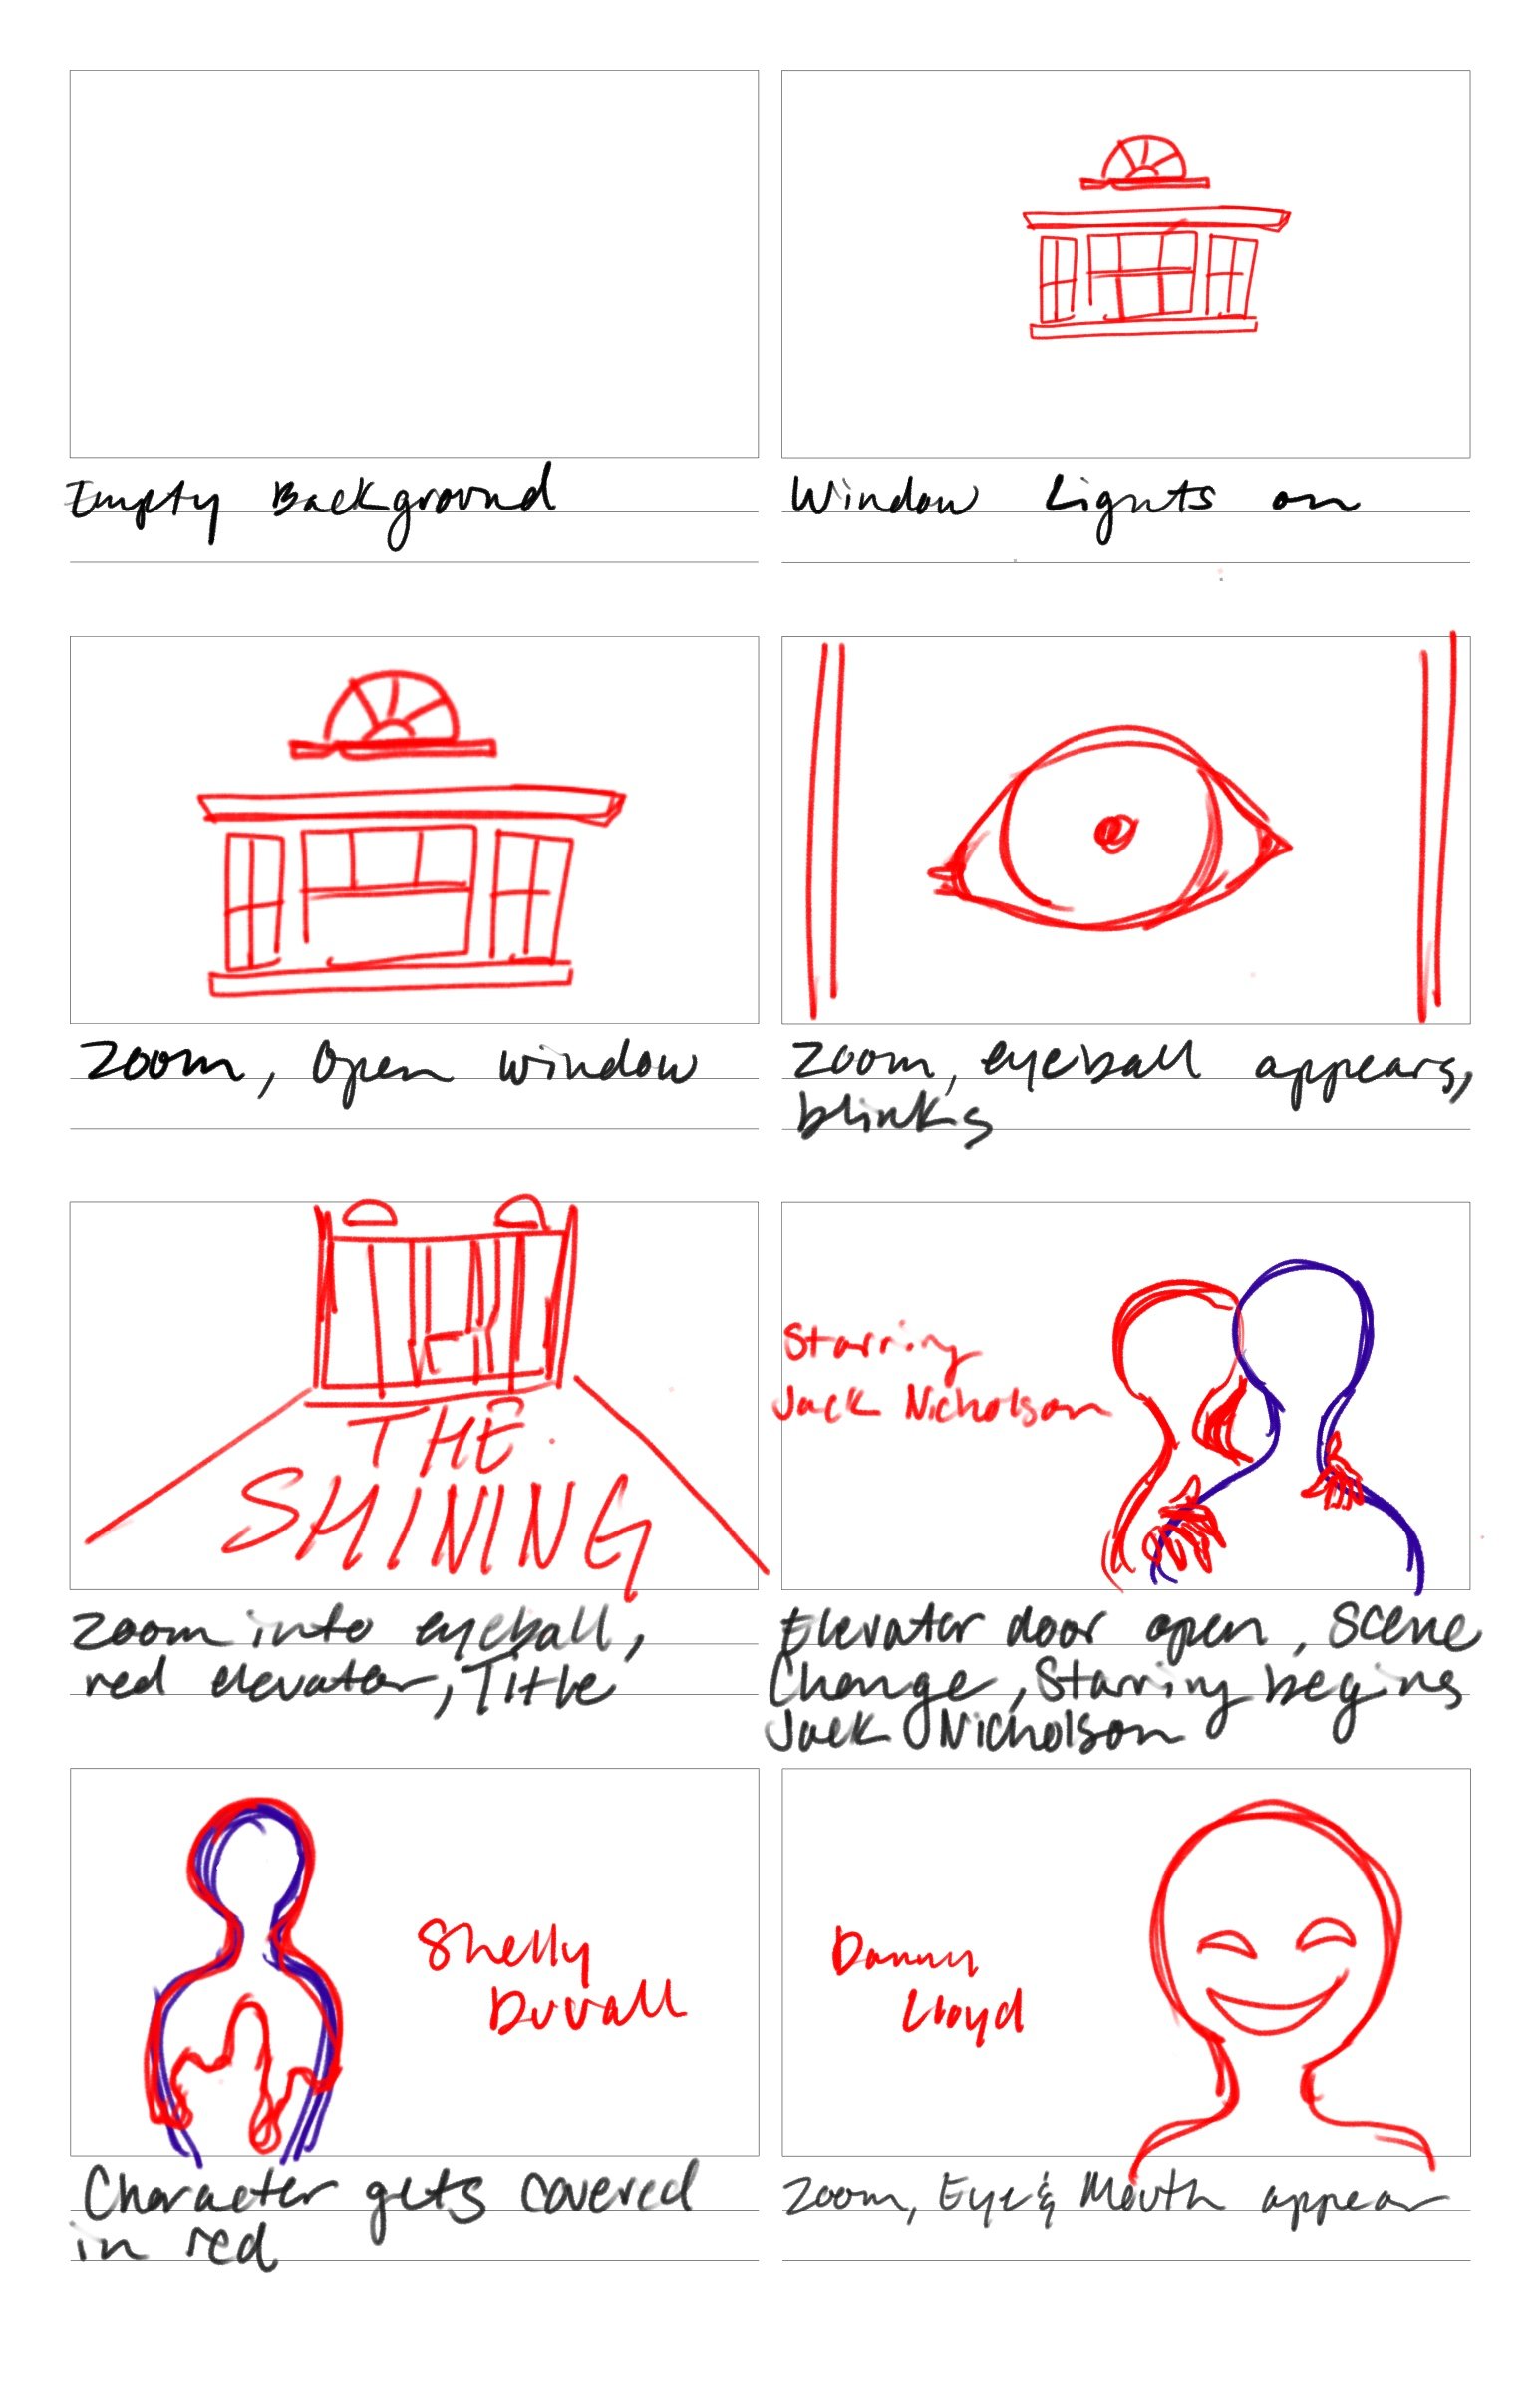 Empty Background
Window Lights on
Zoom, Open window
Zoom, eyeball appears,
blinks
THE
SHINING
Zoom into eyeball,
red elevator, Title
Starring
Jack Nicholson
Elevator door open, Scene
Change, Starring begins
Jack Nicholson
Shelly
Duvall
Character gets covered
in red
Danny
Lloyd
Zoom, Eye & Mouth appear